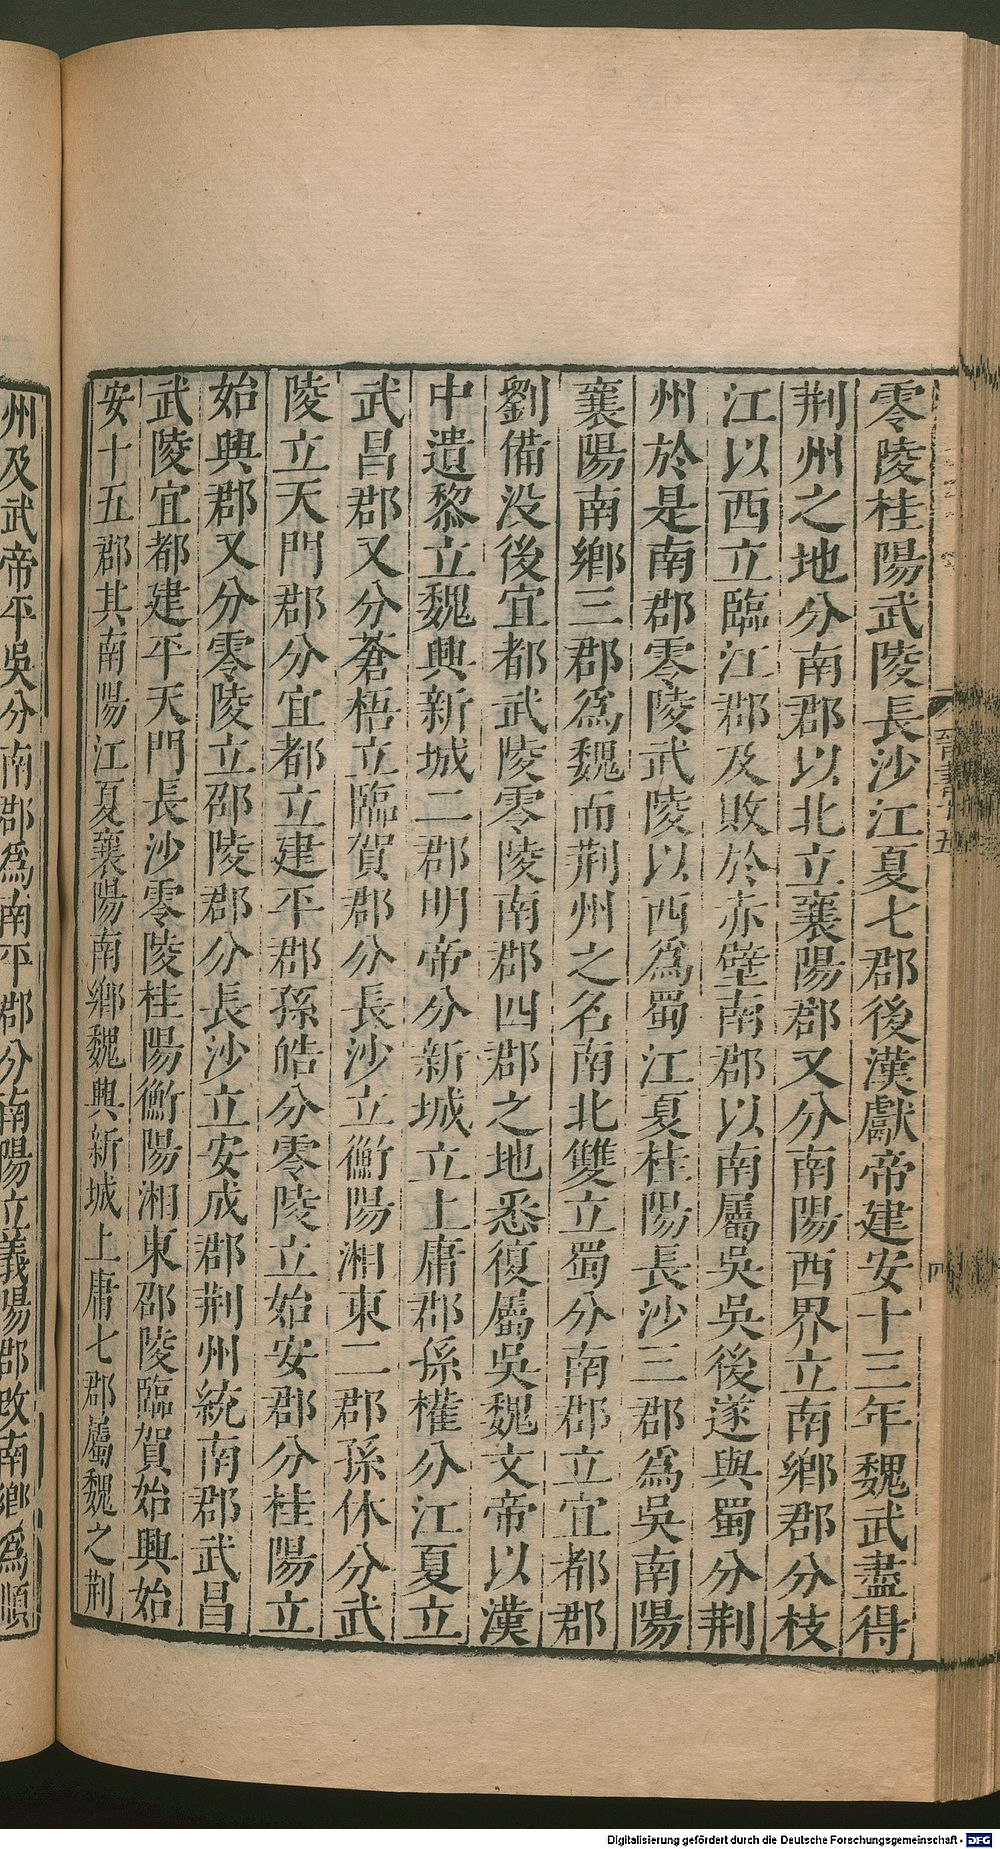 零陵桂陽武陵長沙江夏七郡後漢獻帝建安十三年魏武盡得
荆州之地分南郡以北立襄陽郡又分南陽西界立南鄉郡分枝
江以西立臨江郡及敗於赤壁南郡以南屬吳吳後遂與蜀分荆
州於是南郡零陵武陵以西爲蜀江夏桂陽長沙三郡爲吳南陽
襄陽南鄉三郡爲魏而荆州之名南北雙立蜀分南郡立宜都郡
劉備没後宜都武陵零陵南郡四郡之地悉復屬吳魏文帝以漢
中遺黎立魏興新城二郡明帝分新城立上庸郡孫權分江夏立
武昌郡又分蒼梧立臨賀郡分長沙立衡陽湘東二郡孫休分武
陵立天門郡分宜都立建平郡孫皓分零陵立始安郡分桂陽立
始興郡又分零陵立邵陵郡分長沙立安成郡荆州統南郡武昌
武陵宜都建平天門長沙零陵桂陽衡陽湘東邵陵臨賀始興始
安十五郡其南陽江夏襄陽南鄉魏興新城上庸七郡屬魏之荆
州及武帝平吳分南郡爲南平郡分南陽立義陽郡改南鄉爲順
四
Digitalisierung gefördert durch die Deutsche Forschungsgemeinschaft - DFG